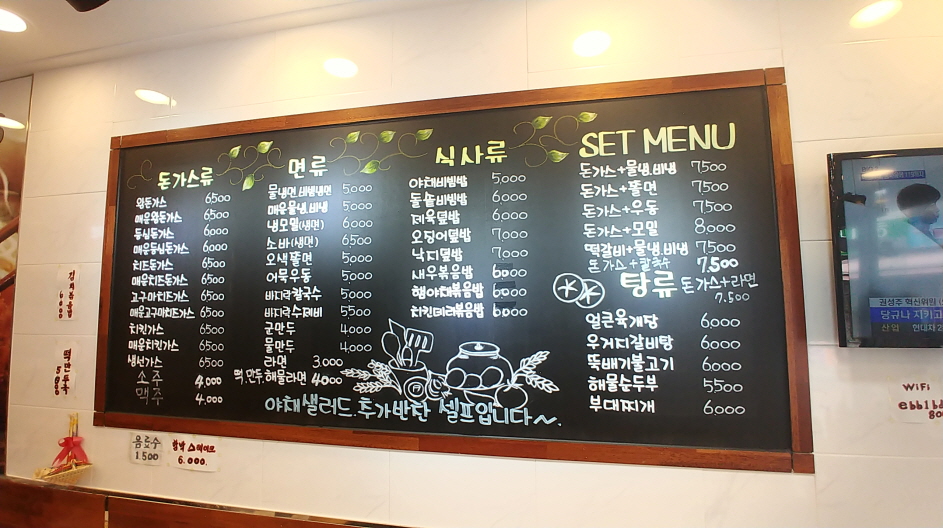 돈가스류
왕돈가스 6500
매운왕돈가스 6500
등심돈가스 6000
매운등심돈가스 6000
치즈돈가스 6500
매운치즈돈가스 6500
고구마치즈가스 6500
매운고구마치즈가스 6500
치킨가스 6500
매운치킨가스 6500
생선가스 6500
소주 4.000
맥주 4.000
면류
물냉면.비빔냉면 5000
매운물냉.비냉 5000
냉모밀(생면) 6000
소바(생면) 6500
오색쫄면 5000
어묵우동 5000
바지락칼국수 5000
바지락수제비 5500
군만두 4000
물만두 4,000
라면 3.000
떡.만두.해물라면 4000
식사류
야채비빔밥 5,000
돌솥비빔밥 6,000
제육덮밥 6,000
오징어덮밥 7000
낙지덮밥 7000
새우볶음밥 6000
햄야채볶음밥 6000
치킨데리볶음밥 6000
SET MENU
돈가스+물냉.비냉 7,500
돈가스+쫄면 7,500
돈가스+우동 7,500
돈가스+모밀 8000
떡갈비+물냉.비냉 7500
돈가스+칼국수 7.500
돈가스+라면
7.500
탕류
얼큰육개장 6,000
우거지갈비탕 6000
뚝배기불고기 6000
해물순두부 5500
부대찌개 6000
야채샐러드.추가반찬 셀프입니다~.
음료수
1500
함박스테이크
6.000.
떡만두국
권성주 혁신위원
당규나 지키고
산업
현대차
WiFi